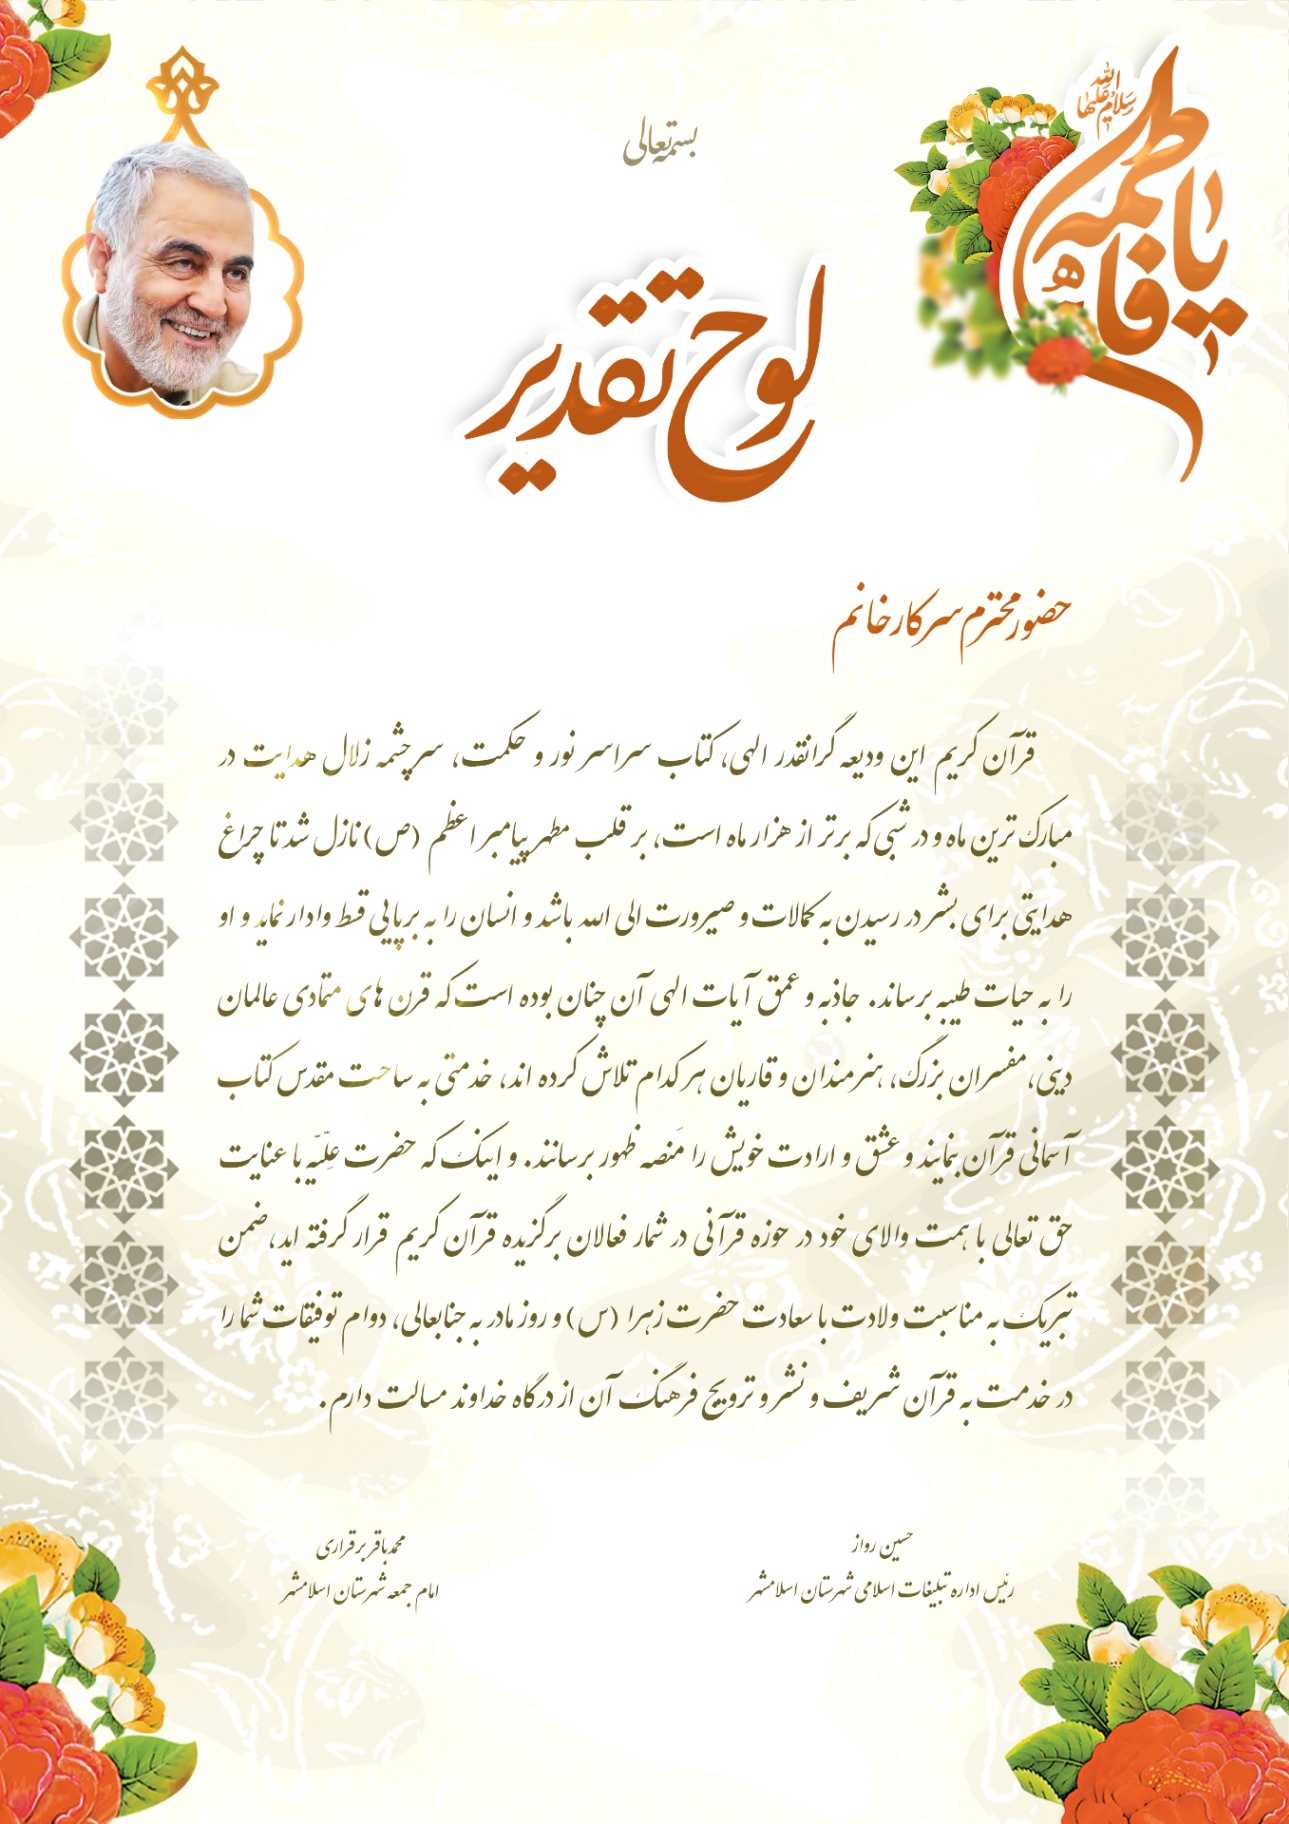 بسمه تعالی
یا فاطمه
سلام الله علیها
لوح تقدیر
حضور محترم سرکار خانم
قرآن کریم این ودیعه گرانقدر الهی، کتاب سراسر نور و حکمت، سرچشمه زلال هدایت در
مبارک ترین ماه و در شبی که برتر از هزار ماه است، بر قلب مطهر پیامبر اعظم (ص) نازل شد تا چراغ
هدایتی برای بشر در رسیدن به کمالات و صیرورت الی الله باشد و انسان را به برپایی قسط وادار نماید و او
را به حیات طیبه برساند. جاذبه و عمق آیات الهی آن چنان بوده است که قرن های متمادی عالمان
دینی، مفسران بزرگ، هنرمندان و قاریان هر کدام تلاش کرده اند، خدمتی به ساحت مقدس کتاب
آسمانی قرآن بنمایند و عشق و ارادت خویش را مَنصه ظهور برسانند. و اینک که حضرت عِلّیّه با عنایت
حق تعالی با همت والای خود در حوزه قرآنی در شمار فعالان برگزیده قرآن کریم قرار گرفته اید، ضمن
تبریک به مناسبت ولادت با سعادت حضرت زهرا (س) و روز مادر به جنابعالی، دوام توفیقات شما را
در خدمت به قرآن شریف و نشر و ترویج فرهنگ آن از درگاه خداوند مسالت دارم.
حسین رواز
رئیس اداره تبلیغات اسلامی شهرستان اسلامشهر
محمدباقر برقراری
امام جمعه شهرستان اسلامشهر